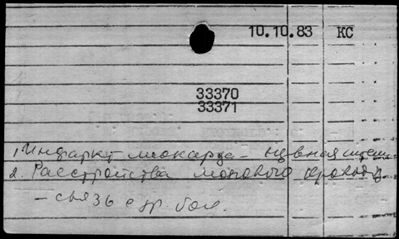 10.10.83 КС
33370
33371
1. Инфаркт миокарда - нервная
2. Расстройства мозгового
- связь с др. бол.